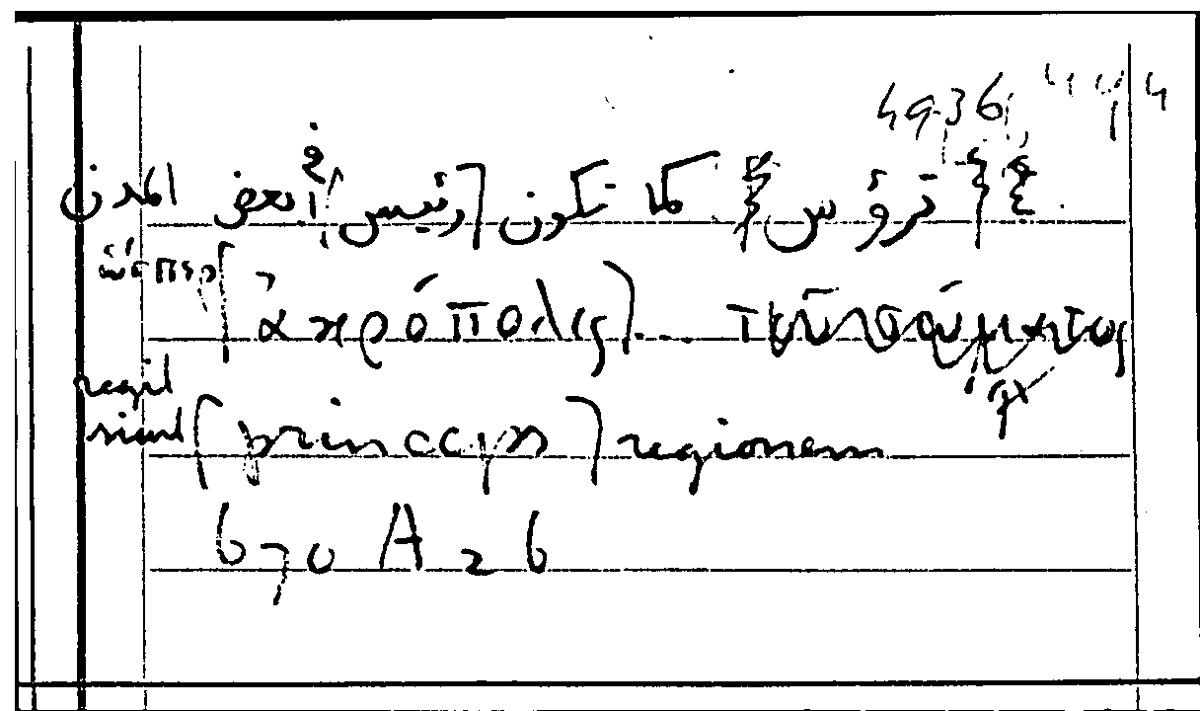 4936 444
{{ تروُس }} كما تكون [رئيس] في بعض المدن
ὥσπερ [ἀκρόπολις] ... τοῦ σώματος
regit
sicut [princeps] regionem
670 A 26